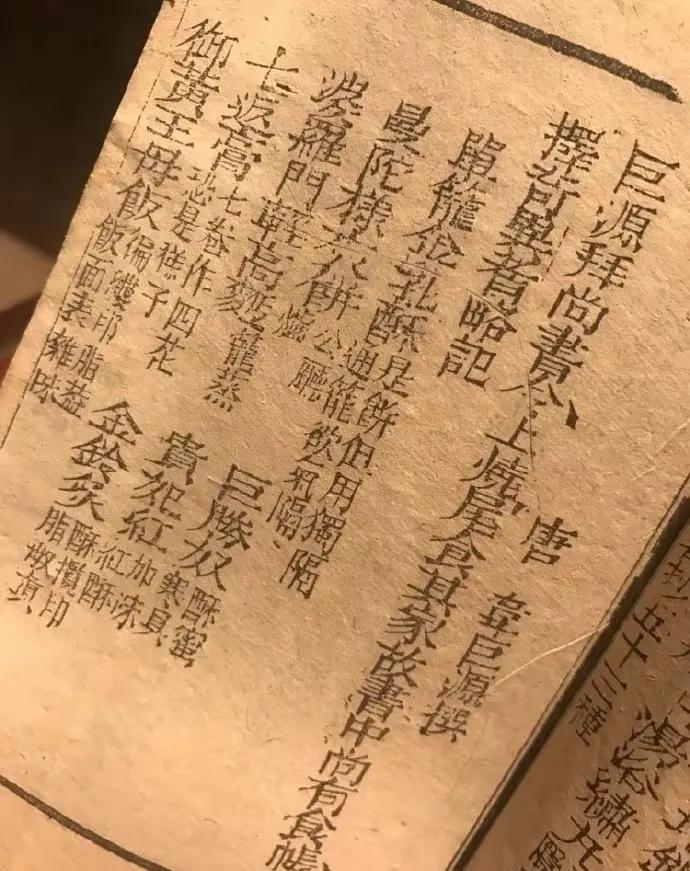 唐 韋巨源撰
巨源拜尚書令上燒尾食其家故書中尚有食帳
擇奇異者略記
單籠金乳酥是餅但用獨隔
通籠欲氣隔
曼陀樣夾餅公廳
爐
巨勝奴酥蜜
寒具
婆羅門輕高麵籠蒸
貴妃紅加味
紅酥
七返膏七卷作四花
恐是糕子
金鈴炙酥攪印
脂真
御黃王母飯徧縷印脂蓋
飯面表雜味
五十三種
湯浴繡丸